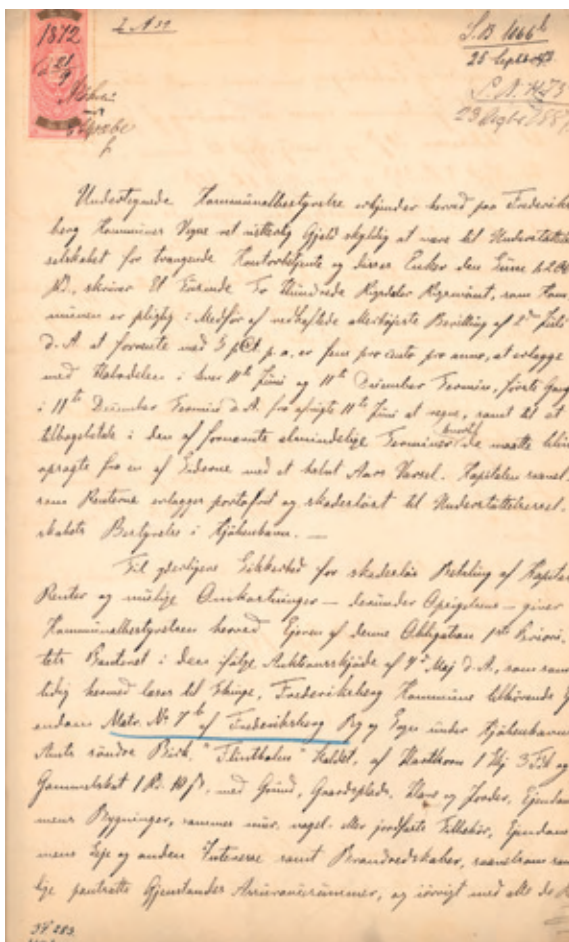 1872
21/9
2 A 32
S.B. 1066 b
25 Septb
Undertegnede Kommunalbestyrelse erkjender herved paa Frederiks-
berg Kommunes Vegne ret vitterlig Gjeld skyldig at være til Understøttelses-
selskabet for trængende Kontorbetjente og disses Enker den Summa
Rd., skriver Et Tusinde To Hundrede Rigsdaler Rigsmønt, som Kom-
munen er pligtig i Medfør af vedhæftede allerhøjeste Bevilling af 2den Juli
d. A. at forrente med 5 pCt. p. a. er fem pro cento pro anno, at erlægge
med Halvdelen i hver 11te Juni og 11te December Termin, første Gang
i 11te December Termin d. A. fra afvigte 11te Juni at regne, samt til at
tilbagebetale i den af fornævnte almindelige Terminer hvortil de maatte blive
opsagte fra en af Siderne med et halvt Aars Varsel. Kapitalen saavel
som Renterne erlægges portofrit og skadesløst til Understøttelsessel-
skabets Bestyrelse i Kjøbenhavn. —
Til yderligere Sikkerhed for skadesløs Betaling af Kapital
Renter og mulige Omkostninger — derunder Opsigelsens — giver
Kommunalbestyrelsen herved Ejeren af denne Obligation 1ste Priori-
tets Panteret i den ifølge Auktionsskjøde af 4de Maj d. A., som sam-
tidig hermed læses til Thinge, Frederiksberg Kommune tilhørende
endom Matr. No 7 b af Frederiksberg By og Sogn under Kjøbenhavns
Amts søndre Birk, "Flintholm" kaldet, af Hartkorn 1 Skj 3 Fdk og
Gammelskat 1 Rd. 10 ß, med Grund, Gaardsplads, Have og Jorder, Ejendom-
mens Bygninger, sammes mur- nagel- eller jordfaste Tilbehør, Ejendom-
mens Leje og anden Interesse samt Brandredskaber, saavelsom sam-
lige pantsatte Gjenstandes Assurancesummer, og iøvrigt med alle de